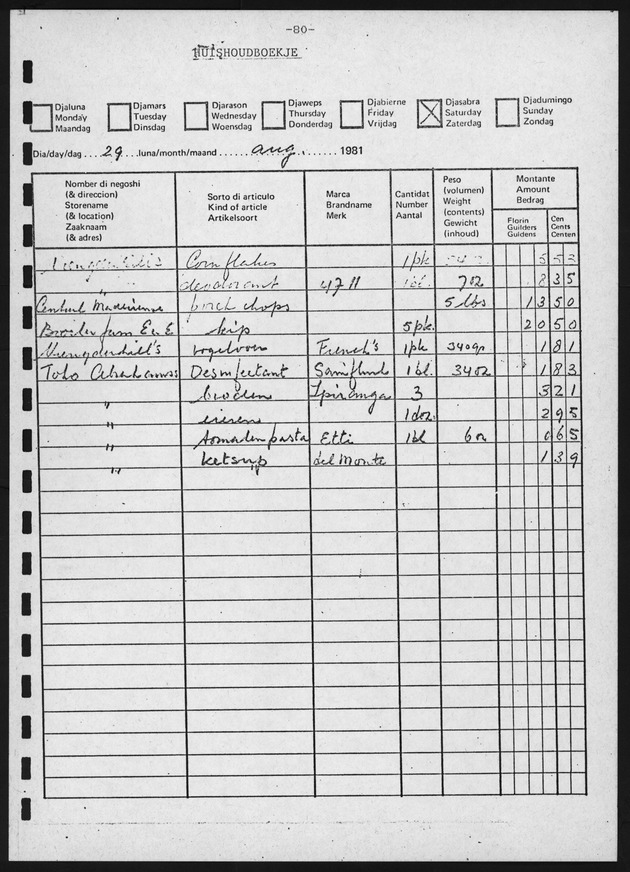 -80-
HUISHOUDBOEKJE
Djaluna Monday Maandag
Djamars Tuesday Dinsdag
Djarason Wednesday Woensdag
Djaweps Thursday Donderdag
Djabierne Friday Vrijdag
Djasabra Saturday Zaterdag
Djadumingo Sunday Zondag
Dia/day/dag....29....luna/month/maand......aug.......1981
Nomber di negoshi (& direccion) Storename (& location) Zaaknaam (& adres)
Sorto di articulo Kind of article Artikelsoort
Marca Brandname Merk
Cantidat Number Aantal
Peso (volumen) Weight (contents) Gewicht (inhoud)
Montante Amount Bedrag
Florin Guilders Guldens
Cen Cents Centen
Cornflakes 1pk 5 53
" deodorant 4711 1bl. 7oz 8 35
Central Madeirense porch chops 5 lbs 13 50
Broiler farm E & E kip 5pk. 20 50
French's 1pk 340gr 1 81
Toko Desinfectant 1bl. 34oz 1 83
" broden Ipiranga 3 3 21
" eieren 1doz. 2 95
" tomadenpasta Etti 1bl 6oz 0 65
" ketsup del Monte 1 39